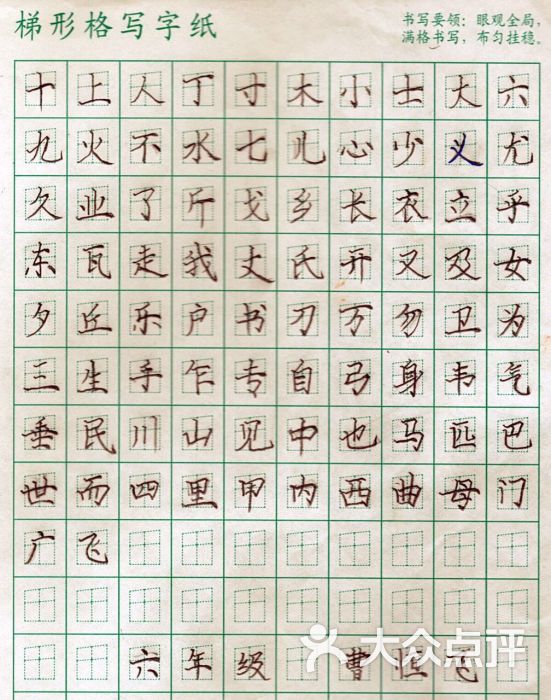 梯形格写字纸
书写要领：眼观全局，
满格书写，布匀挂稳。
十上人丁寸木小士大六
九火不水七儿心少义尤
久业了斤戈乡长衣立乎
东瓦走我丈氏开叉及女
夕丘乐户书刀万勿卫为
三生手乍专自弓身韦气
垂民川山见中也马匹巴
世而四里甲内西曲母门
广飞
六年级 曹恒
大众点评